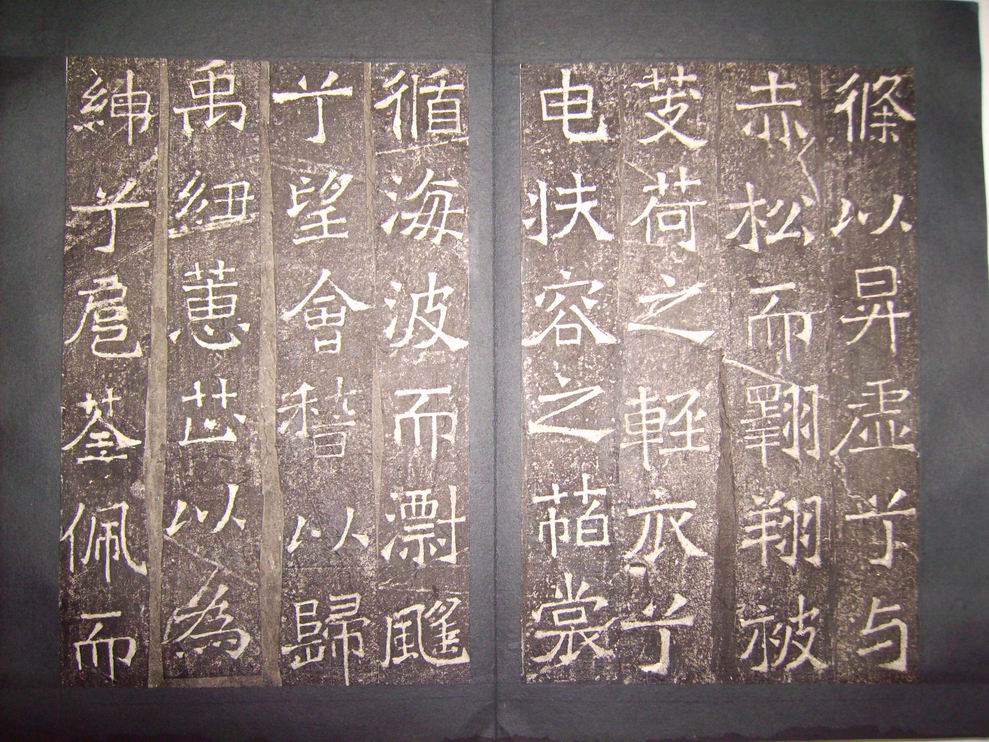 條以昇虛兮与
赤松而翱翔被
芰荷之輕衣兮
曳扶容之裳
循海波而颻
兮望會稽以歸
禹紐蕙芷以為
紳兮扈荃佩而